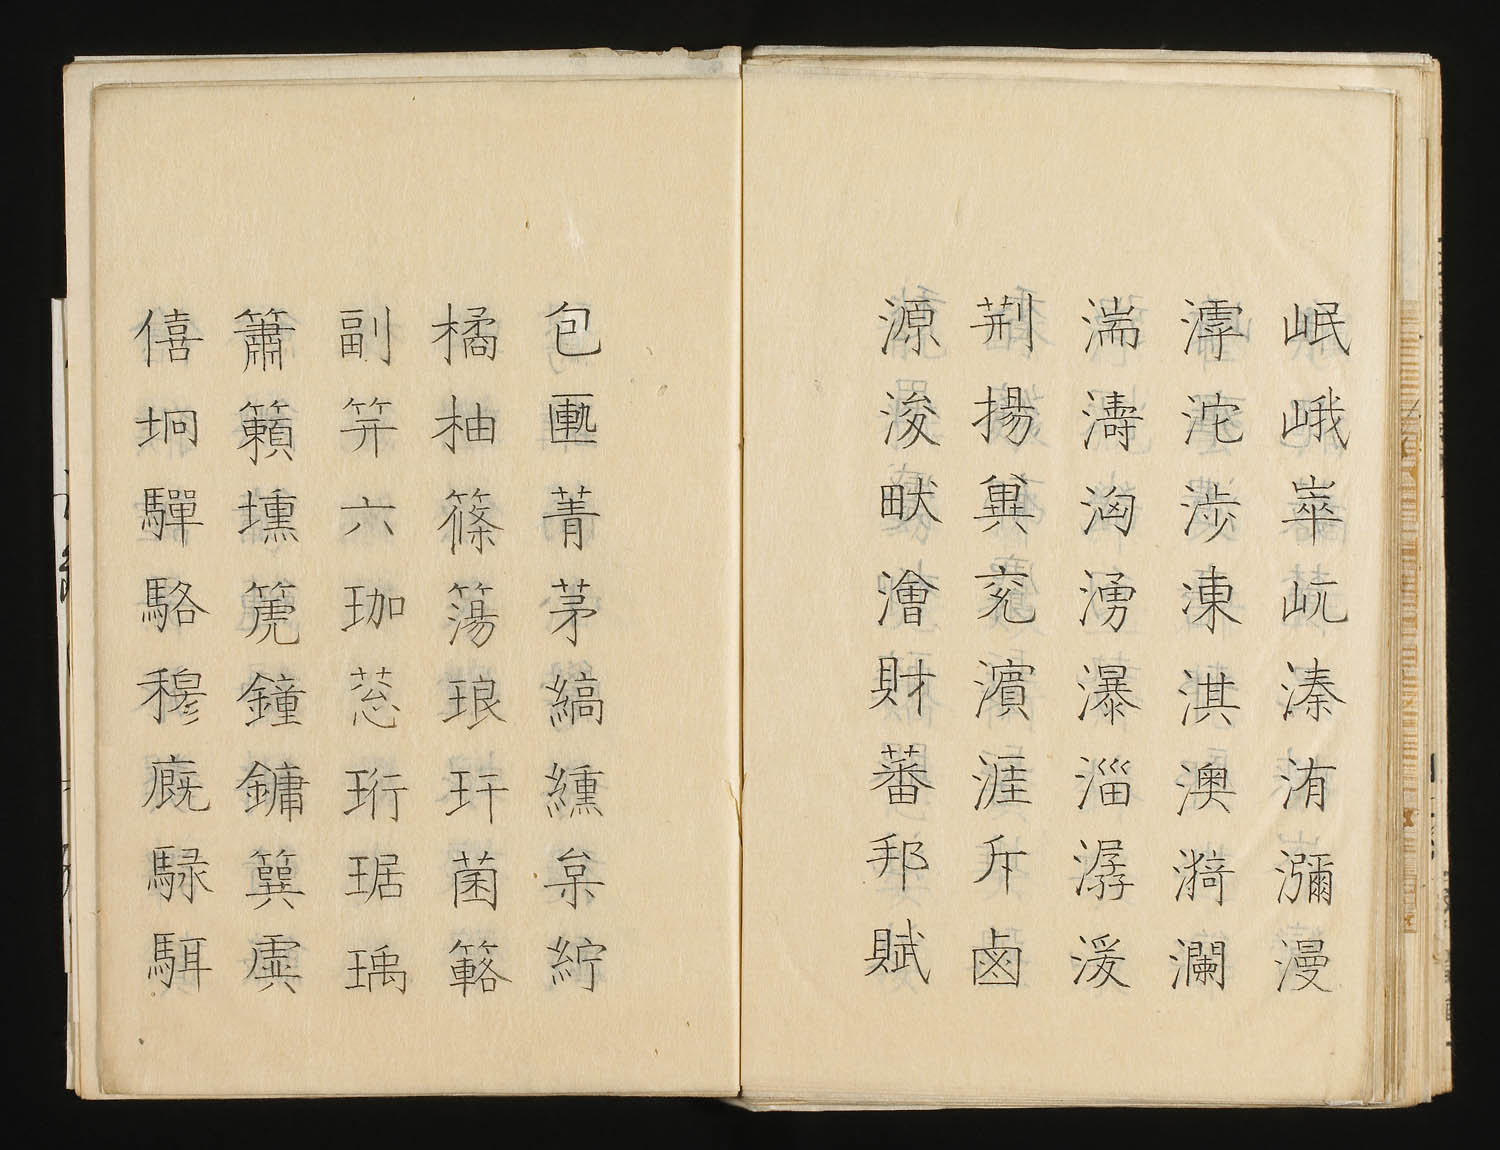 岷峨崒岏溱洧瀰漫
滹沱涉涷淇澳漪瀾
湍濤洶湧瀑淄潺湲
荆揚兾兖濱涯斥鹵
源浚畎澮財蕃邦賦
包匭菁茅縞纁枲紵
橘柚篠簜琅玕菌簵
副笄六珈蔥珩琚瑀
簫籟壎篪鐘鏞簨虡
僖坰驒駱穆廐騄駬